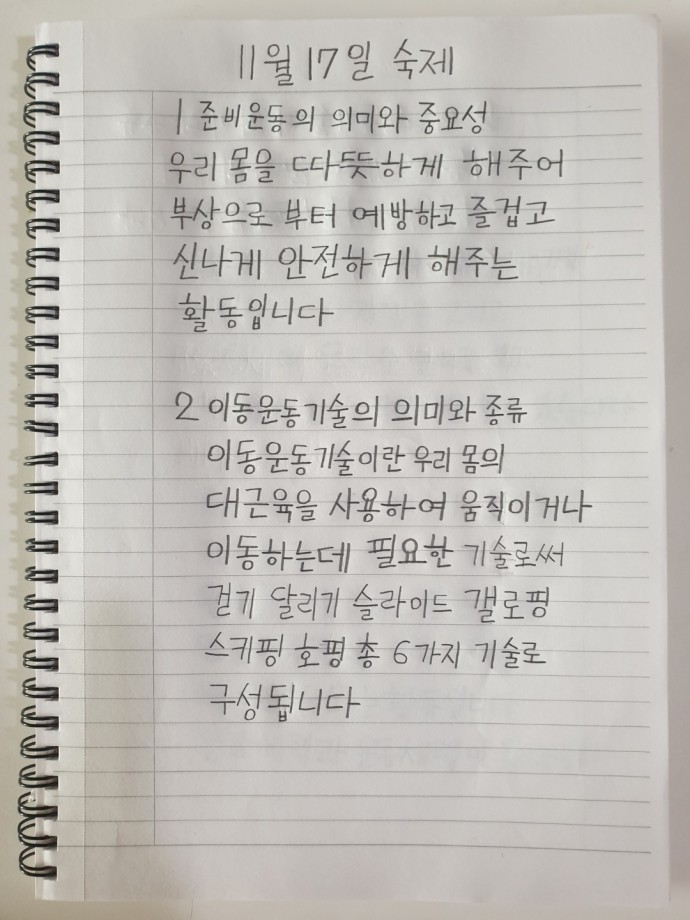 11월 17일 숙제
1 준비운동의 의미와 중요성
우리 몸을 따뜻하게 해주어
부상으로 부터 예방하고 즐겁고
신나게 안전하게 해주는
활동입니다
2 이동운동기술의 의미와 종류
이동운동기술이란 우리 몸의
대근육을 사용하여 움직이거나
이동하는데 필요한 기술로써
걷기 달리기 슬라이드 갤로핑
스키핑 호핑 총 6가지 기술로
구성됩니다